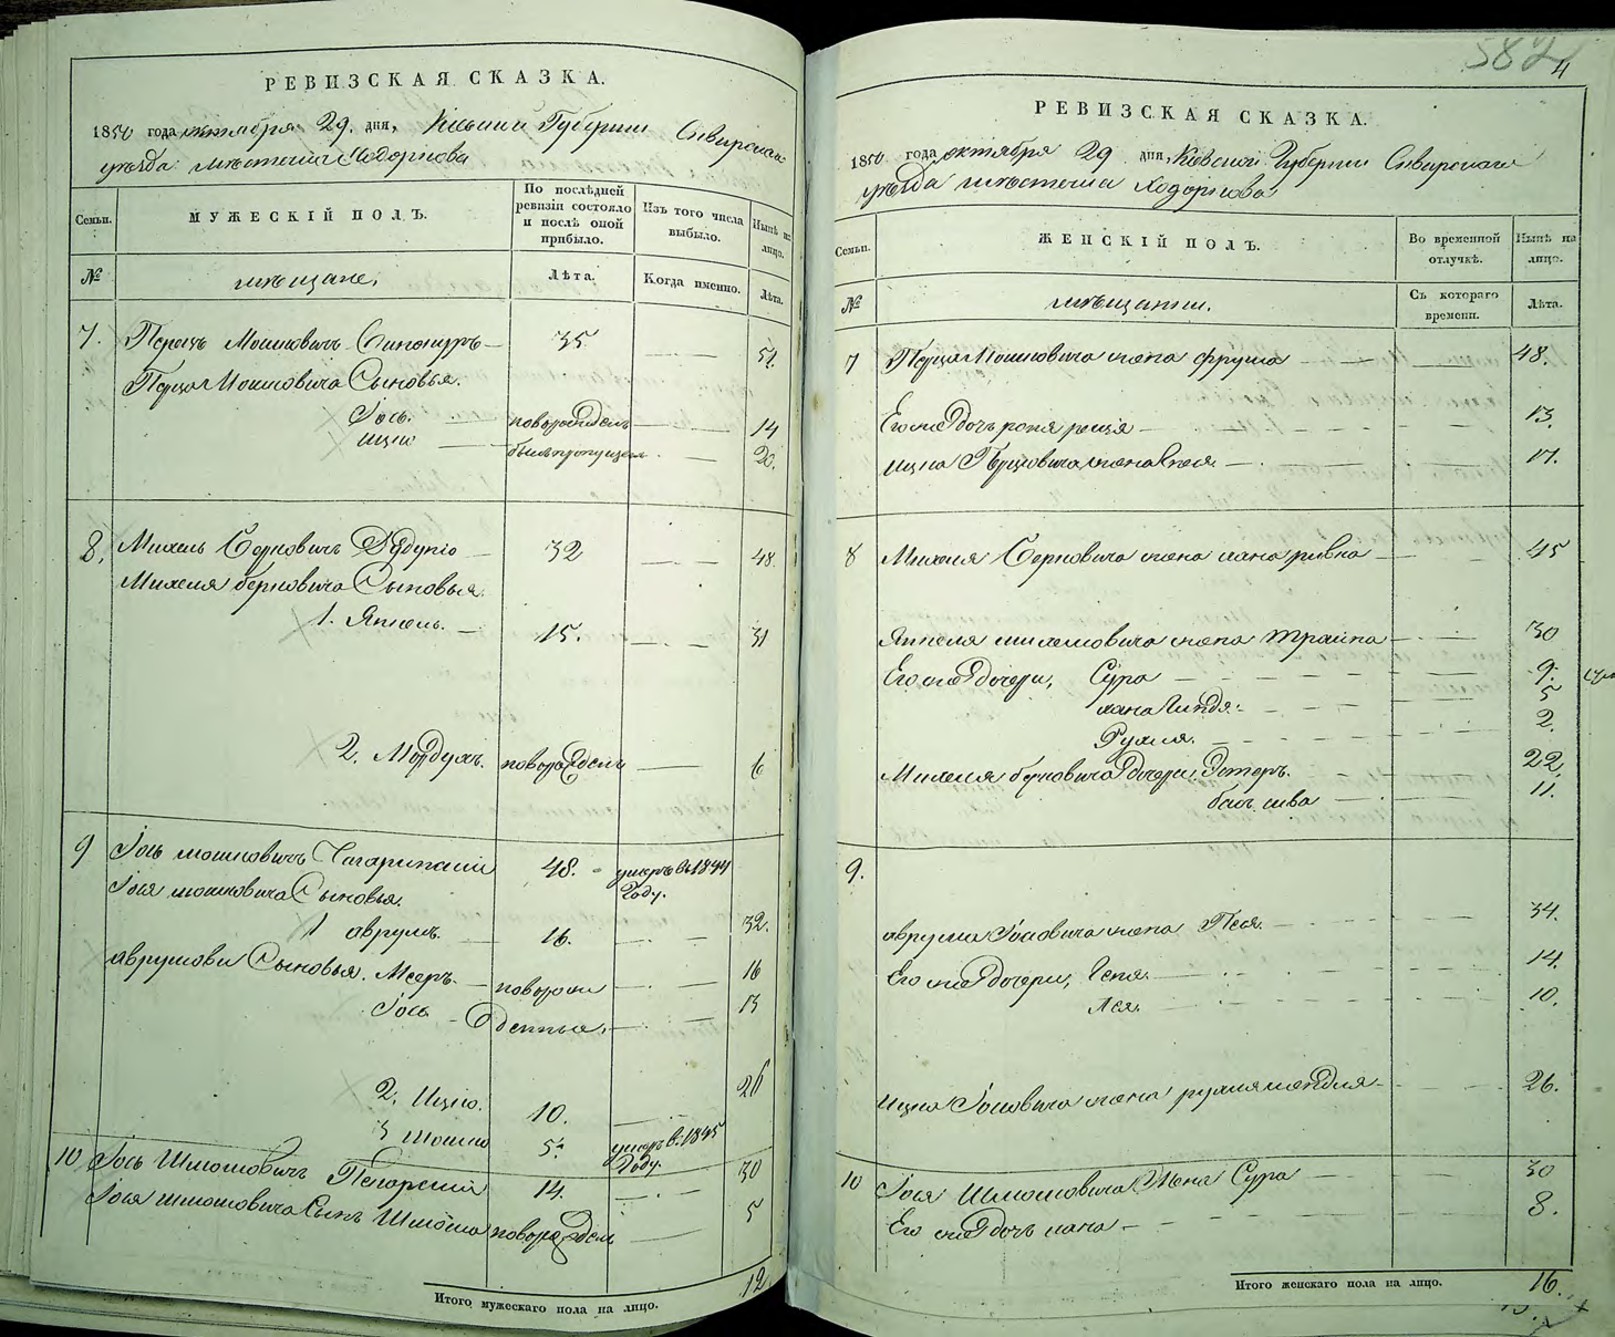 РЕВИЗСКАЯ СКАЗКА.
1850 года октября 29. дня, Кіевской Губерніи Сквирскаго
уѣзда мѣстечка Ходоркова
Семьи.
МУЖЕСКІЙ ПОЛЪ.
По послѣдней ревизіи состояло и послѣ оной прибыло.
Изъ того числа выбыло.
Нынѣ на лицо.
№
мѣщане.
Лѣта.
Когда именно.
Лѣта.
7. Перецъ Мошковичъ 35 51.
Перца Мошковича Сыновья.
Іось. новорожден 14
Ицко былъ пропущен 20.
8. Михель Берковичъ 32 48.
Михеля Берковича Сыновья.
1. Янкель. 15. 31
2. Мордухъ. новорожден 6
9 Іось мошковичъ 48. умеръ въ 1844 Году.
Іося мошковича Сыновья.
1 аврумъ. 16. 32.
аврумови Сыновья. Мееръ. новорож 16
Іось денные. 13
2. Ицко. 10. 26
3 Мошко 5. умеръ в: 1845 Году.
10 Іось Шмошовичъ 14. 30
Іося шмошовича Сынъ Шмоша новорожден 5
Итого мужескаго пола на лицо. 12
582
4
РЕВИЗСКАЯ СКАЗКА.
1850 года октября 29 дня, Кіевской Губерніи Сквирскаго
уѣзда мѣстечка Ходоркова
Семьи.
ЖЕНСКІЙ ПОЛЪ.
Во временной отлучкѣ.
Нынѣ на лицо.
№
мѣщанки.
Съ котораго времени.
Лѣта.
7 Перца Мошковича жена фрума 48.
Его же дочь 13.
Ицка Перцовича жена 17.
8 Михеля Берковича жена хана ривка 45
Янкеля михелевича жена трайна 30
Его же дочери, Сура 9.
хана 5
Рухля. 2.
Михеля берковича дочери. Эстеръ. 22.
бася шева 11.
9.
аврума Іосовича жена Песя. 34.
Его же дочери, 14.
Лея. 10.
Ицка Іосовича жена рухля 26.
10 Іося Шмошовича Жена Сура 30
Его же дочь хана 8.
Итого женскаго пола на лицо. 16.